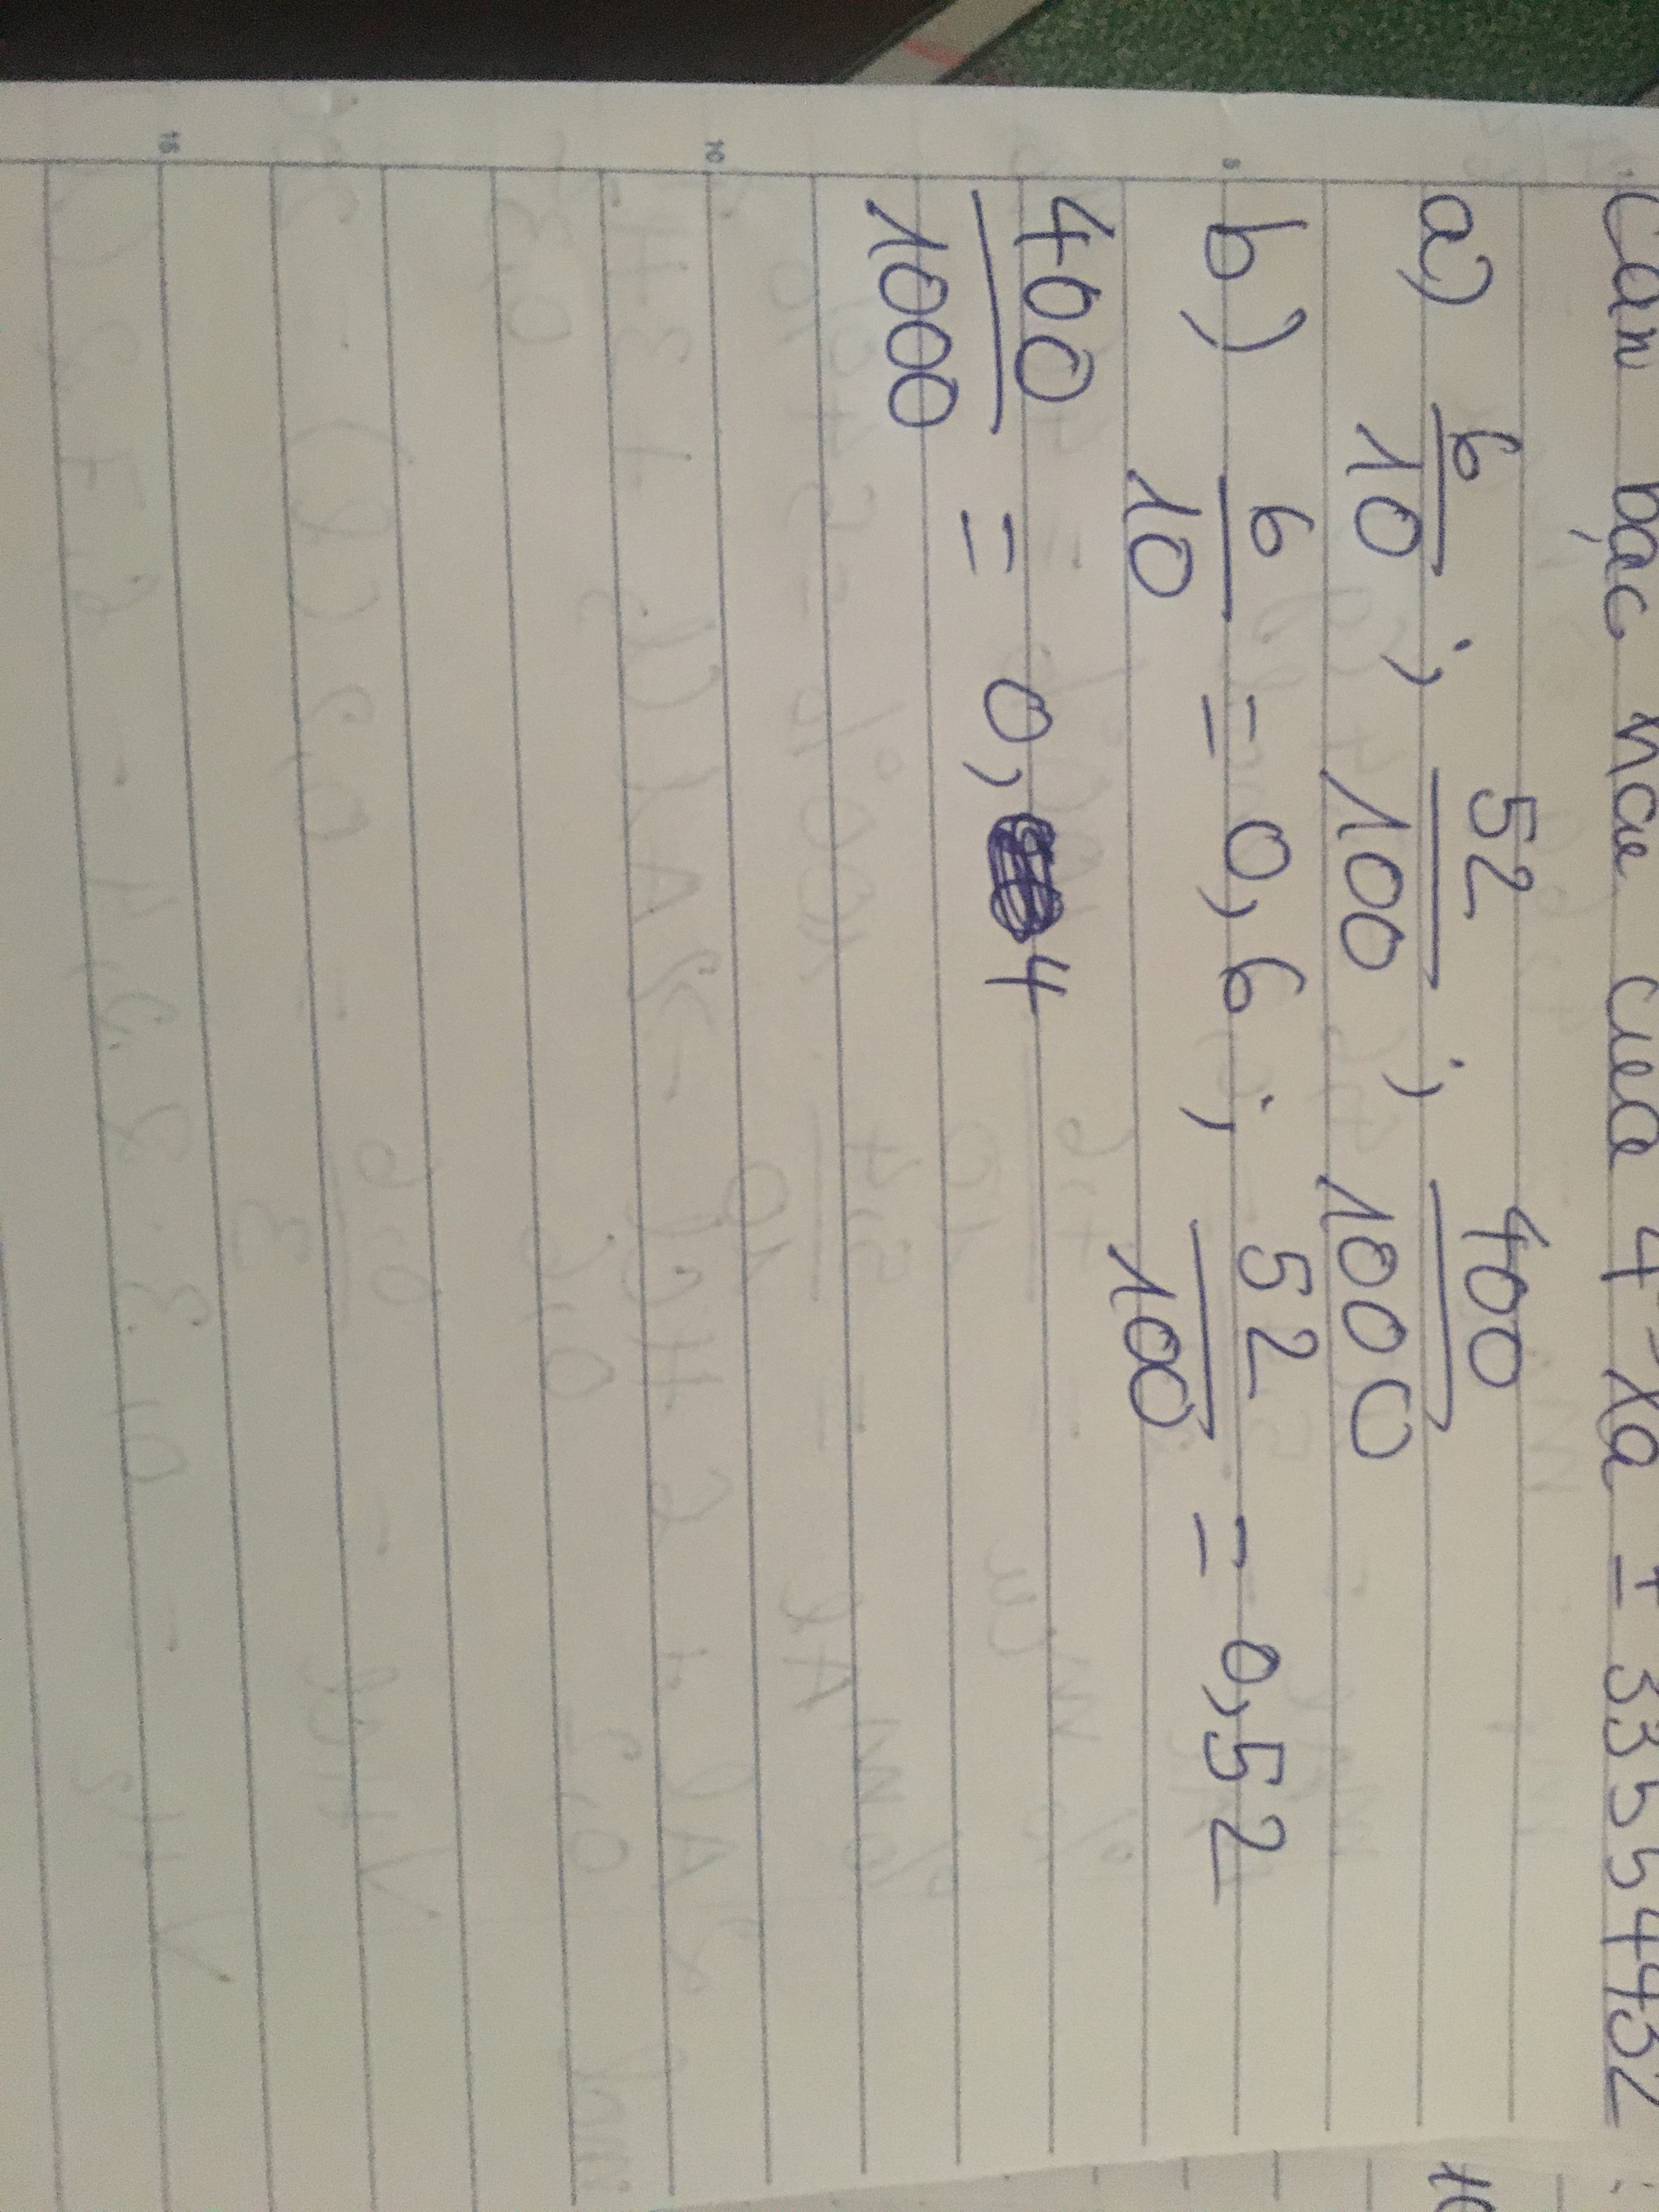 Căn bậc hai của 4 xa ± 33554432
a) 6/10 ; 52/100 ; 400/1000
b) 6/10 = 0,6 ; 52/100 = 0,52
400/1000 = 0,4
5
10
15